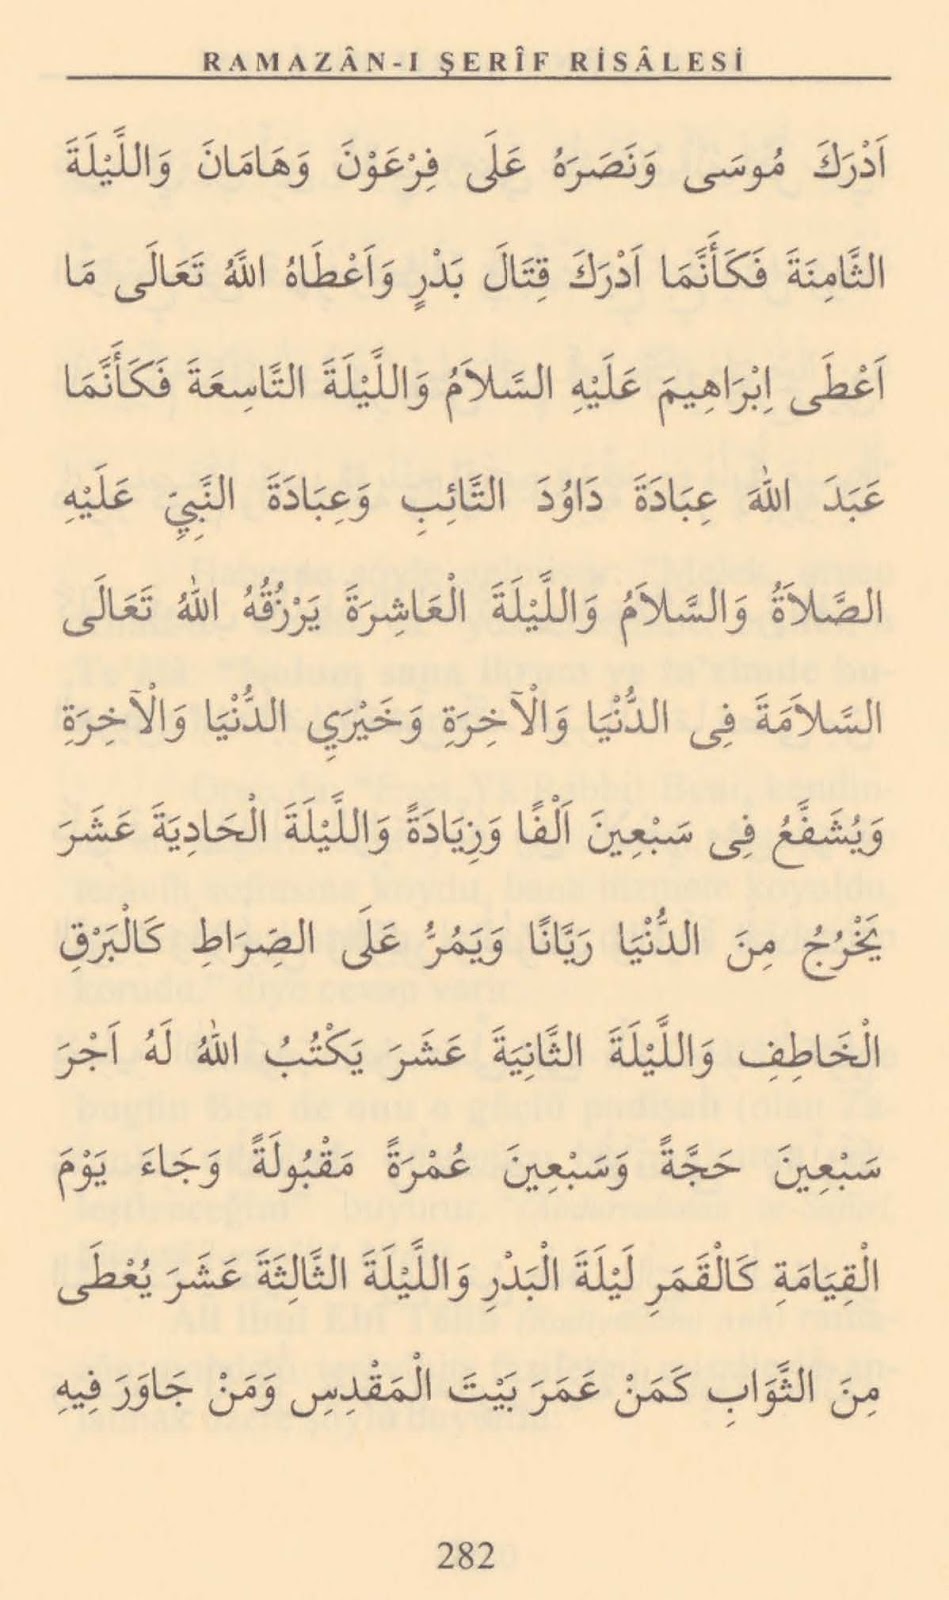 RAMAZÂN-I ŞERÎF RİSÂLESİ
اَدْرَكَ مُوسَى وَنَصَرَهُ عَلَى فِرْعَوْنَ وَهَامَانَ وَاللَّيْلَةَ
الثَّامِنَةَ فَكَأَنَّمَا اَدْرَكَ قِتَالَ بَدْرٍ وَاَعْطَاهُ اللَّهُ تَعَالَى مَا
اَعْطَى اِبْرَاهِيمَ عَلَيْهِ السَّلاَمُ وَاللَّيْلَةَ التَّاسِعَةَ فَكَأَنَّمَا
عَبَدَ اللهَ عِبَادَةَ دَاوُدَ التَّائِبِ وَعِبَادَةَ النَّبِيِّ عَلَيْهِ
الصَّلاَةُ وَالسَّلاَمُ وَاللَّيْلَةَ الْعَاشِرَةَ يَرْزُقُهُ اللهُ تَعَالَى
السَّلاَمَةَ فِى الدُّنْيَا وَالْآخِرَةِ وَخَيْرَيِ الدُّنْيَا وَالْآخِرَةِ
وَيُشَفَّعُ فِى سَبْعِينَ اَلْفًا وَزِيَادَةً وَاللَّيْلَةَ الْحَادِيَةَ عَشَرَ
يَخْرُجُ مِنَ الدُّنْيَا رَيَّانًا وَيَمُرُّ عَلَى الصِّرَاطِ كَالْبَرْقِ
الْخَاطِفِ وَاللَّيْلَةَ الثَّانِيَةَ عَشَرَ يَكْتُبُ اللهُ لَهُ اَجْرَ
سَبْعِينَ حَجَّةً وَسَبْعِينَ عُمْرَةً مَقْبُولَةً وَجَاءَ يَوْمَ
الْقِيَامَةِ كَالْقَمَرِ لَيْلَةَ الْبَدْرِ وَاللَّيْلَةَ الثَّالِثَةَ عَشَرَ يُعْطَى
مِنَ الثَّوَابِ كَمَنْ عَمَرَ بَيْتَ الْمَقْدِسِ وَمَنْ جَاوَرَ فِيهِ
282